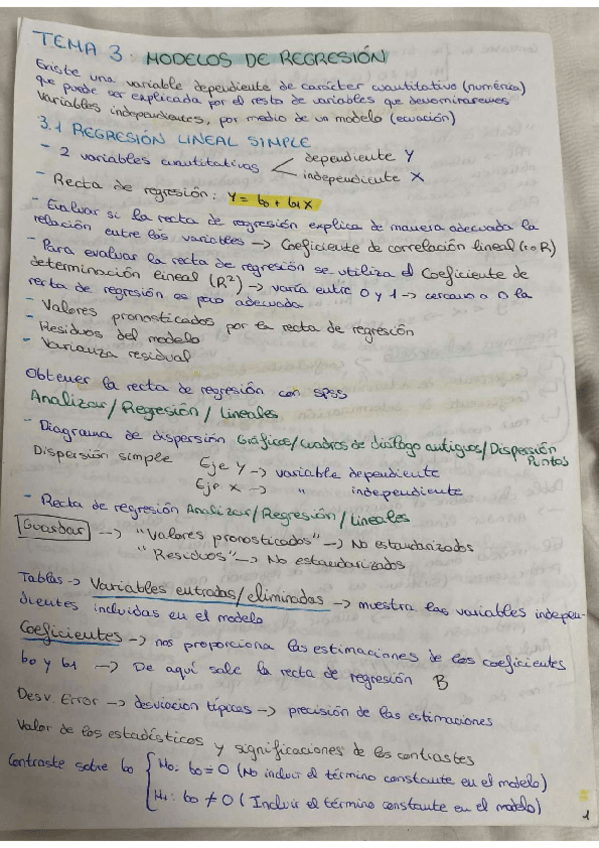 TEMA 3: MODELOS DE REGRESIÓN
Existe una variable dependiente de carácter cuantitativo (numérica)
que puede ser explicada por el resto de variables que denominaremos
variables independientes, por medio de un modelo (ecuación)
3.1 REGRESIÓN LINEAL SIMPLE
- 2 variables cuantitativas < dependiente Y
independiente X
- Recta de regresión: Y = b0 + b1 X
- Evaluar si la recta de regresión explica de manera adecuada la
relación entre las variables → Coeficiente de correlación lineal (r o R)
- Para evaluar la recta de regresión se utiliza el Coeficiente de
determinación lineal (R²) → varía entre 0 y 1 → cercano a 0 la
recta de regresión es poco adecuada
- Valores pronosticados por la recta de regresión
- Residuos del modelo
- Varianza residual
Obtener la recta de regresión con SPSS
Analizar/Regresión/Lineales
- Diagrama de dispersión Gráficos/Cuadros de diálogo antiguos/Dispersión
Puntos
Dispersión simple Eje Y → variable dependiente
Eje X → " independiente
- Recta de regresión Analizar/Regresión/Lineales
Guardar → "Valores pronosticados" → No estandarizados
"Residuos" → No estandarizados
Tablas → Variables entradas/eliminadas → muestra las variables indepen-
dientes incluidas en el modelo
Coeficientes → nos proporciona las estimaciones de los coeficientes
b0 y b1 → De aquí sale la recta de regresión B
Desv. Error → desviación típicas → precisión de las estimaciones
Valor de los estadísticos y significaciones de los contrastes
Contraste sobre b0 { H0: b0 = 0 (No incluir el término constante en el modelo)
H1: b0 ≠ 0 (Incluir el término constante en el modelo)
1